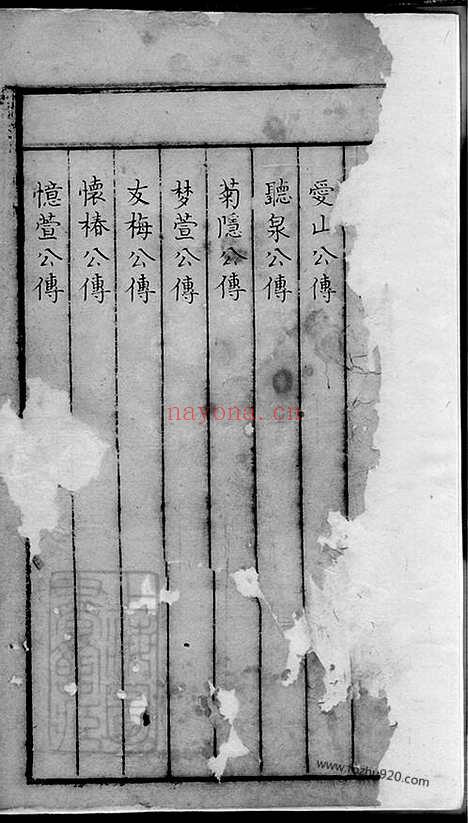 愛山公傳
聽泉公傳
菊隱公傳
梦萱公傳
友梅公傳
懷椿公傳
憶萱公傳
nayona.cn
www.fozhu920.com